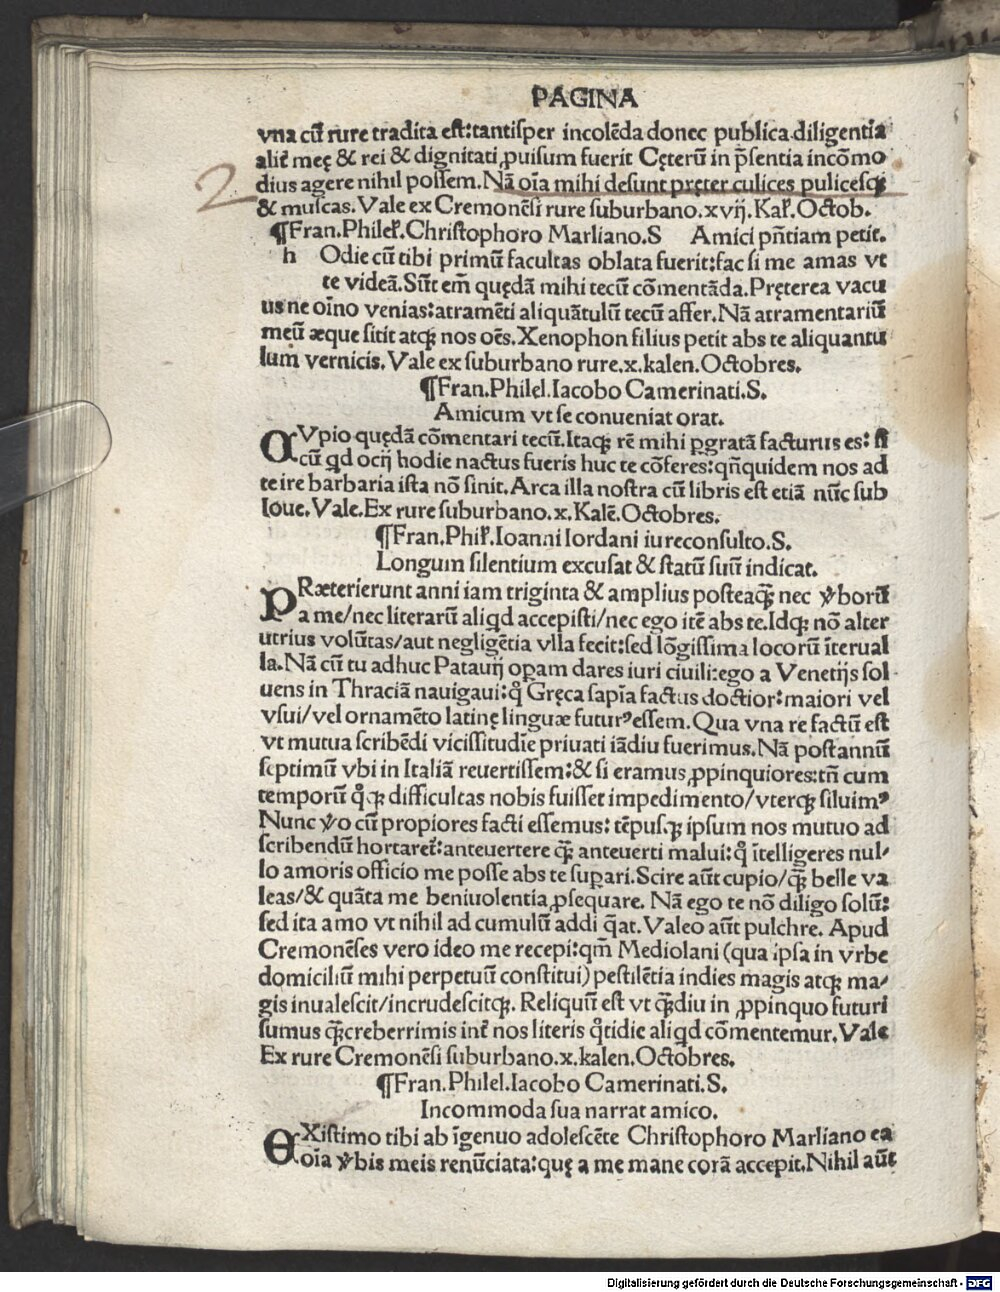 PAGINA
vna cũ rure tradita est:tantisper incolẽda donec publica diligentia
alit̃ meę & rei & dignitati ꝓuisum fuerit Cęterũ in p̃sentia incõmo
dius agere nihil possem.Nã oĩa mihi desunt pręter culices pulicesqꝫ
& muscas.Vale ex Cremonẽsi rure suburbano.xvij.Kal̃.Octob.
2
¶Fran.Philel̃.Christophoro Marliano.S Amici pñtiam petit.
h Odie cũ tibi primũ facultas oblata fuerit:fac si me amas vt
te videã.Sũt em̃ quędã mihi tecũ cõmentãda.Pręterea vacu
us ne oĩno venias:atramẽti aliquãtulũ tecũ affer.Nã atramentariũ
meũ æque sitit atqꝫ nos oẽs.Xenophon filius petit abs te aliquantu
lum vernicis.Vale ex suburbano rure.x.kalen.Octobres.
¶Fran.Philel.Iacobo Camerinati.S.
Amicum vt se conueniat orat.
CVpio quędã cõmentari tecũ.Itaqꝫ rẽ mihi ꝑgratã facturus es:si
cũ qd ocij hodie nactus fueris huc te cõferes:qñquidem nos ad
te ire barbaria ista nõ sinit.Arca illa nostra cũ libris est etiã nũc sub
Ioue.Vale.Ex rure suburbano.x.Kalẽ.Octobres.
¶Fran.Phil̃.Ioanni Iordani iureconsulto.S.
Longum silentium excusat & statũ suũ indicat.
PRæterierunt anni iam triginta & amplius posteaqꝫ̃ nec ṽborũ
a me/nec literarũ aliqd accepisti/nec ego itẽ abs te.Idqꝫ nõ alter
utrius volũtas/aut negligẽtia vlla fecit:sed lõgissima locorũ ĩterual
la.Nã cũ tu adhuc Patauij oꝑam dares iuri ciuili:ego a Venetijs sol-
uens in Thraciã nauigaui:q̊ Gręca sapĩa factus doctior:maiori vel
vsui/vel ornamẽto latinę linguæ futurꝰ essem.Qua vna re factũ est
vt mutua scribẽdi vicissitudĩe priuati iãdiu fuerimus.Nã post annũ
septimũ vbi in Italiã reuertissem:& si eramus ꝓpinquiores:tñ cum
temporũ q̊qꝫ difficultas nobis fuisset impedimento/vterqꝫ siluimꝰ
Nunc ṽo cũ propiores facti essemus:tẽpusqꝫ ipsum nos mutuo ad
scribendũ hortaret̃:anteuertere qꝫ̃ anteuerti malui:q̊ ĩtelligeres nul-
lo amoris officio me posse abs te suꝑari.Scire aũt cupio/qꝫ̃ belle va
leas/& quãta me beniuolentia ꝓsequare. Nã ego te nõ diligo solũ:
sed ita amo vt nihil ad cumulũ addi q̃at.Valeo aũt pulchre. Apud
Cremonẽses vero ideo me recepi:qm̃ Mediolani (qua ipsa in vrbe
domiciliũ mihi perpetuũ constitui) pestilẽtia indies magis atqꝫ ma/
gis inualescit/incrudescitqꝫ. Reliquũ est vt qꝫ̃diu in ꝓpinquo futuri
sumus qꝫ̃creberrimis int̃ nos literis q̊tidie aliqd cõmentemur.Vale
Ex rure Cremonẽsi suburbano.x.kalen.Octobres.
¶Fran.Philel.Iacobo Camerinati.S.
Incommoda sua narrat amico.
EXistimo tibi ab ĩgenuo adolescẽte Christophoro Marliano ea
oĩa ṽbis meis renũciata:quę a me mane corã accepit.Nihil aũt
Digitalisierung gefördert durch die Deutsche Forschungsgemeinschaft - DFG